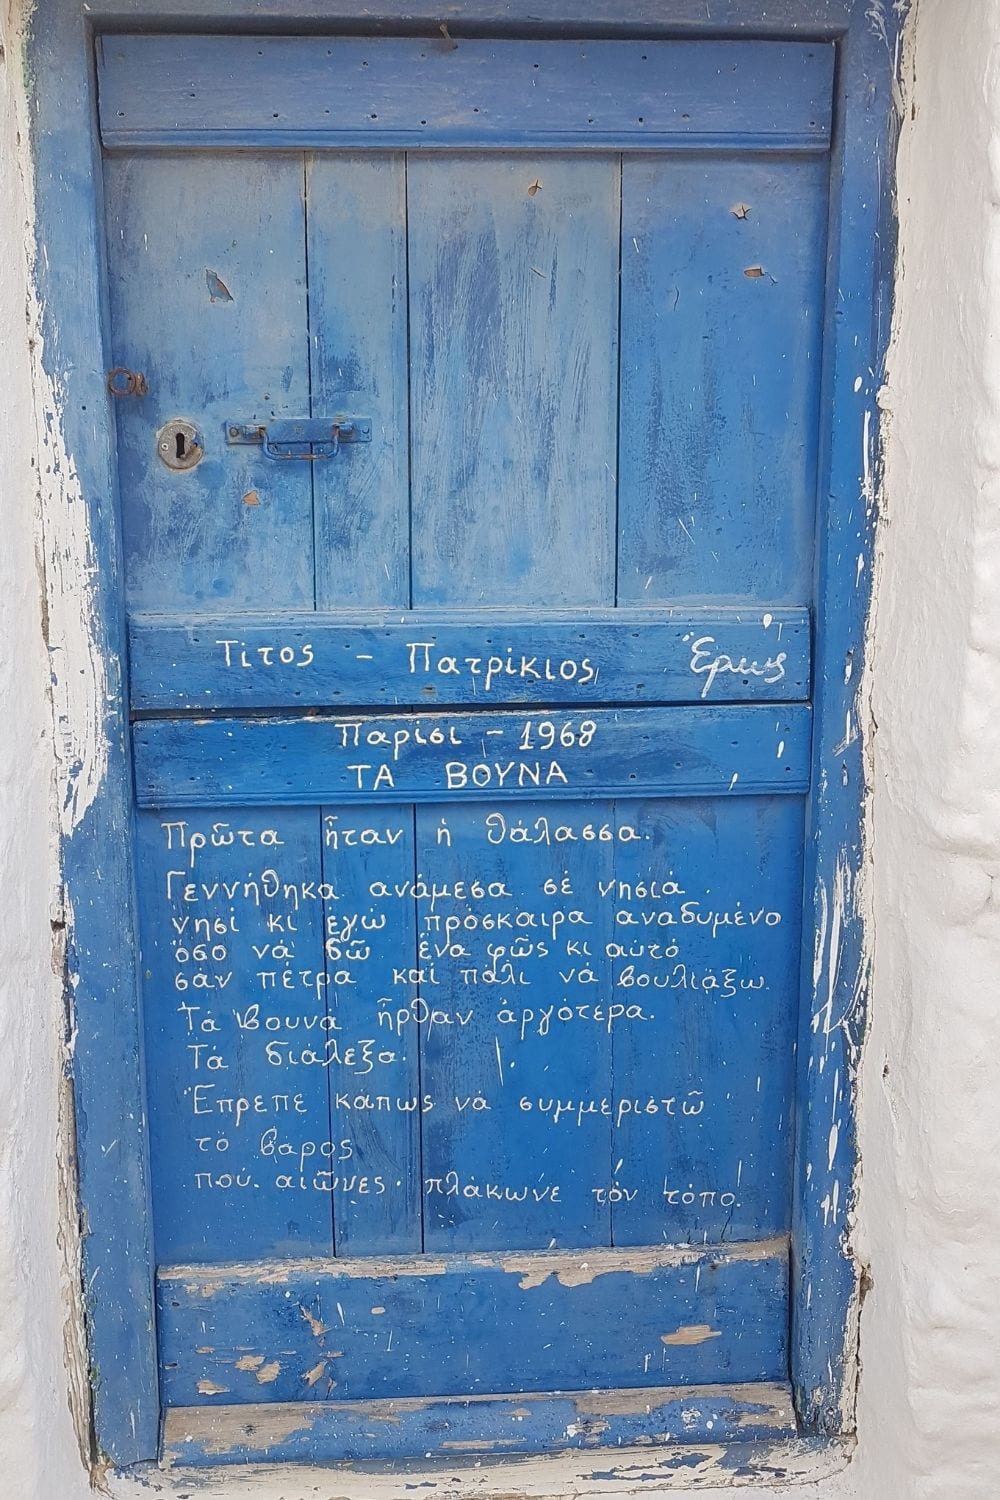 Τίτος - Πατρίκιος Ἑρμῆς
Παρίσι - 1968
ΤΑ ΒΟΥΝΑ
Πρῶτα ἦταν ἡ θάλασσα.
Γεννήθηκα ανάμεσα σέ νησιά.
νησί κι εγώ πρόσκαιρα αναδυμένο
ὅσο νά δῶ ἕνα φῶς κι αὐτό
σάν πέτρα καί πάλι νά βουλιάξω.
Τά βουνά ἦρθαν ἀργότερα.
Τά διάλεξα.
Ἔπρεπε κάπως νά συμμεριστῶ
τό βάρος
πού αἰῶνες πλάκωνε τόν τόπο.